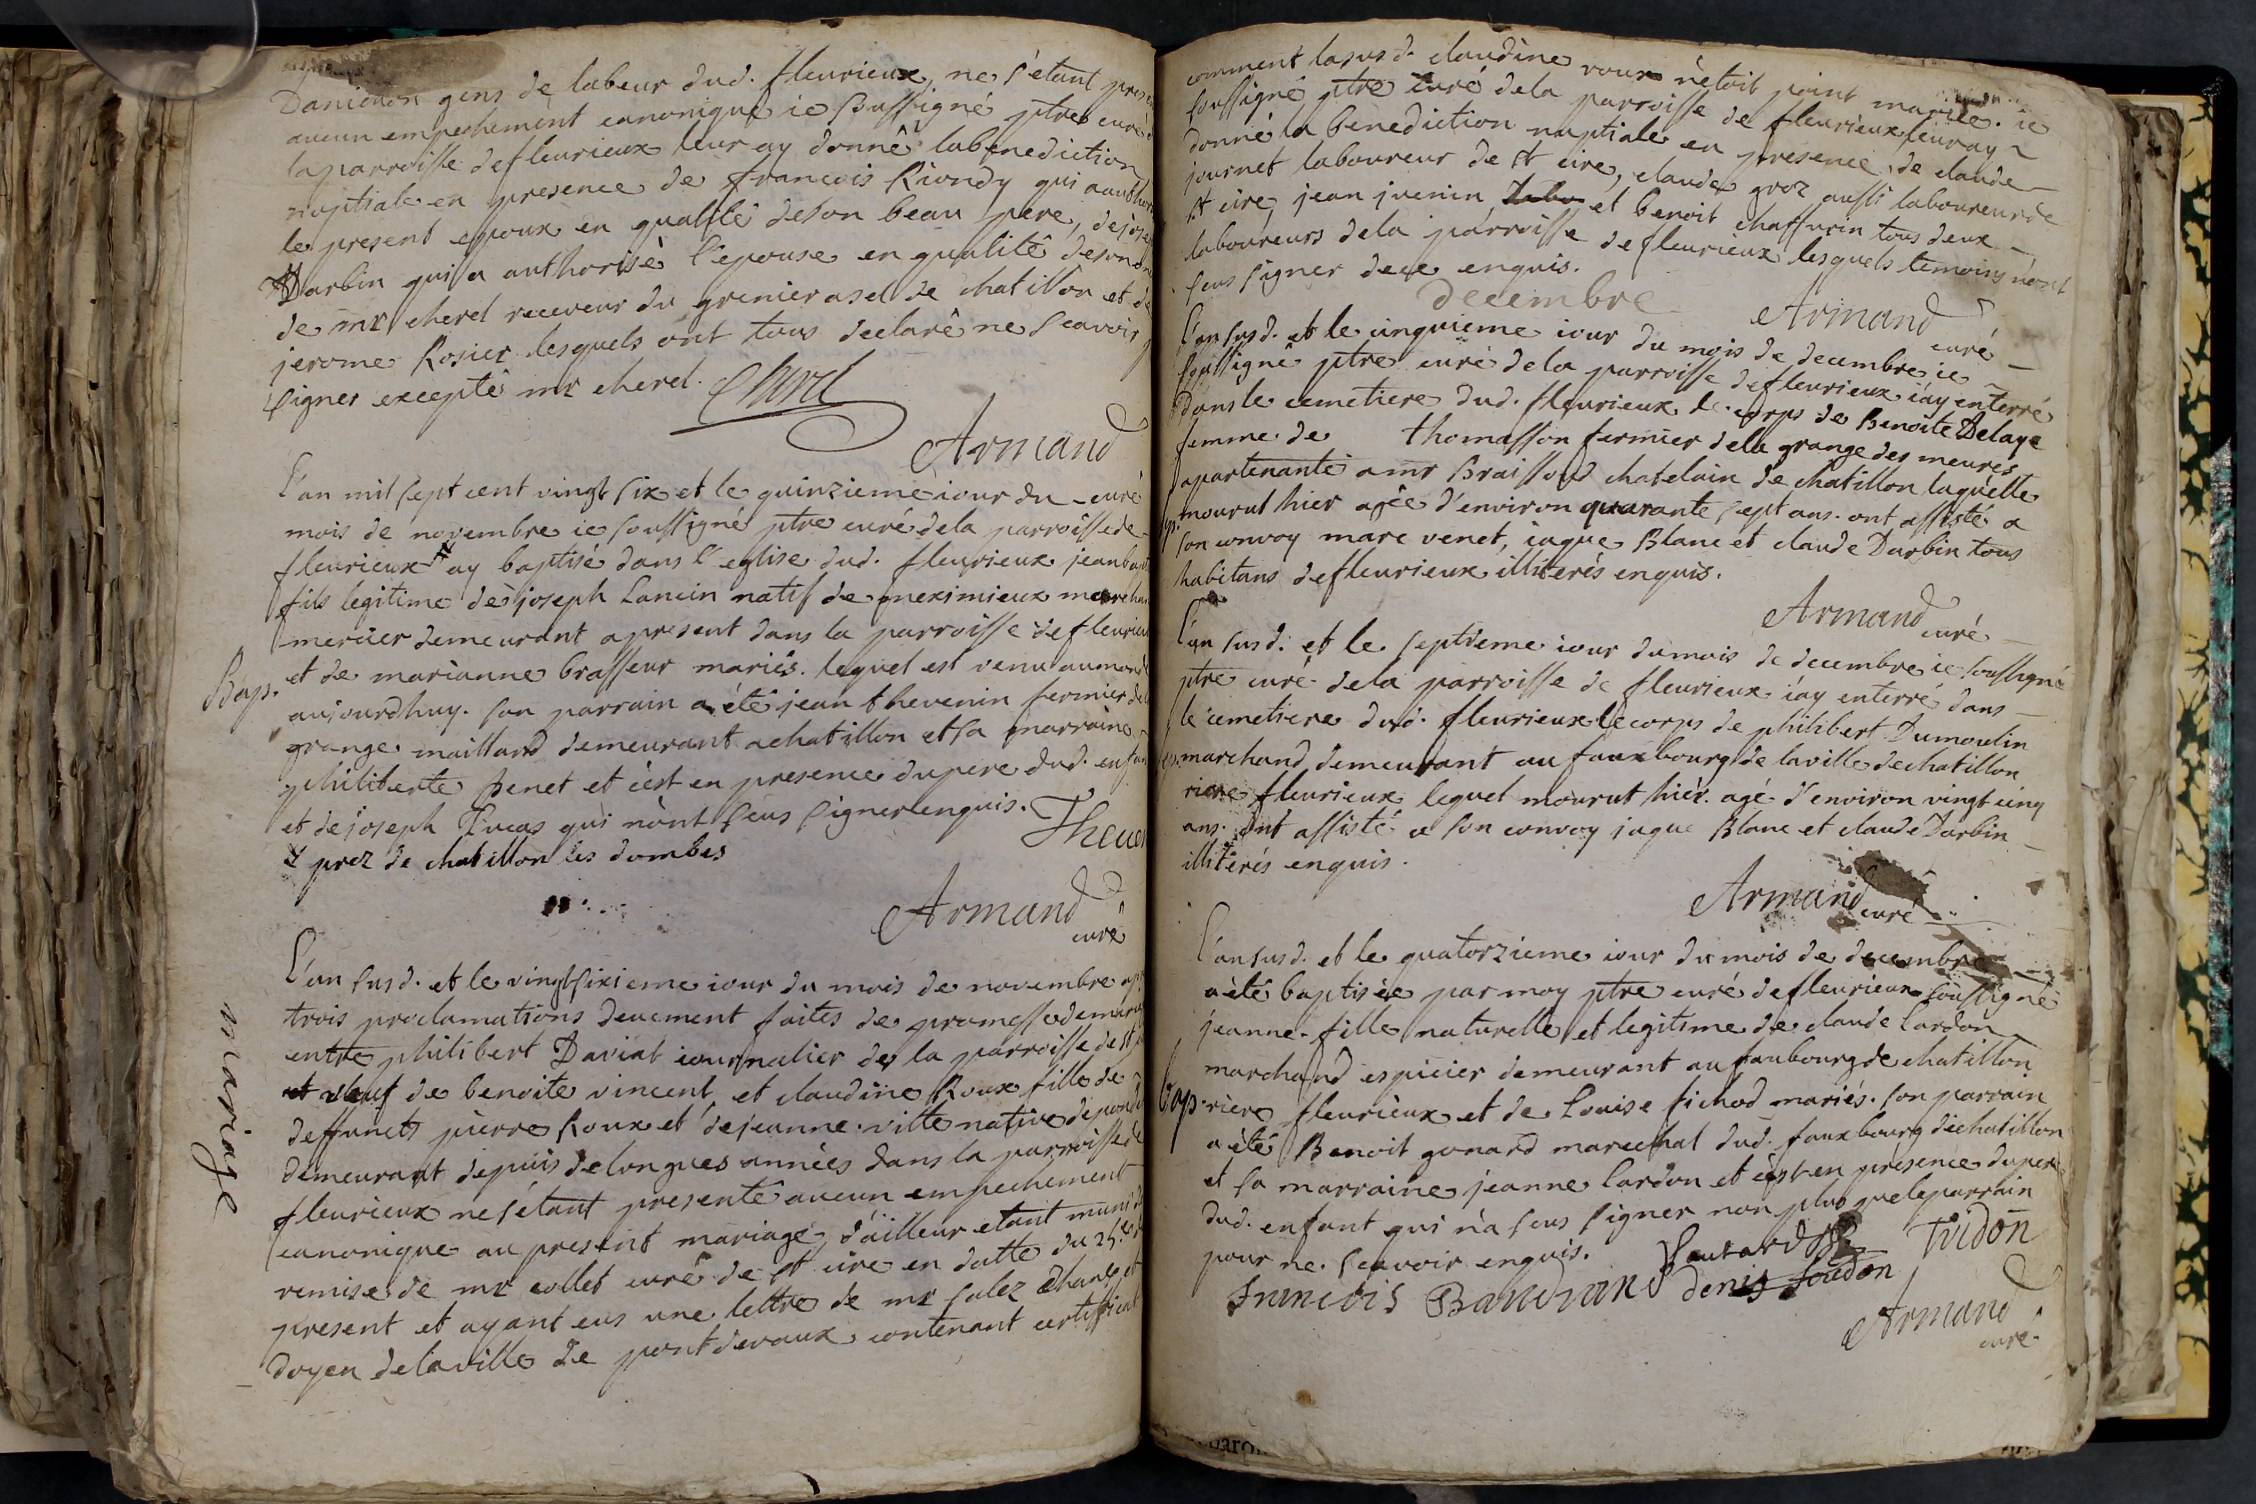 Danienon gens de labeur dud. fleurieux, ne s'étant presen
aucun empechement canonique ie soussigné ptre curé d
la parroisse de fleurieux leur ay donné la benediction
nuptiale en presence de francois Riondy qui a auth
le present epoux en qualité de son beau pere, de jose
Darbin qui a authorisè l'epouse en qualité de son
de mr cherel receveur du grenier a sel de chatillon et de
jerome Rosier lesquels ont tous declaré ne scavoir
signer exceptê mr cherel. Cherel
Armand
curé
L'an mil sept cent vingt six et le quinzieme iour du
mois de novembre ie soussigné ptre curé de la parroisse de
fleurieux ay baptisé dans l'eglise dud. fleurieux jean bap
fils legitime de joseph Lancin natif de meximieux marchan
mercier demeurant a present dans la parroisse de fleurieu
et de marianne brasseur mariés. lequel est venu au monde
Bap.
aujourdhuy. son parrain a été jean thevenin fermier de
grange maillard demeurant a chatillon et sa marraine
philiberte penet et c'est en presence du pere dud. enfan
et de joseph Lucas qui n'ont sceus signer enquis. Theve
prez de chatillon les dombes
Armand
curé
L'an susd. et le vingt sixieme iour du mois de novembre ap
trois proclamations deuement faites de promesse de maria
entre philibert Daviat iournalier de la parroisse de st
et veuf de benoite vincent, et claudine Roux fille de
deffuncts pierre Roux et de jeanne ville native de pond
demeurant depuis de longues années dans la parroisse de
fleurieux ne s'étant presenté aucun empechement
canonique au present mariage, d'ailleur etant muni de
remise de mr collet curé de st cire en datte du 25.
present et ayant eus une lettre de mr salez chan. et
doyen de la ville de pont devaux contenant certificat
mariage
comment la susd. claudine roux n'etoit point mariée. ie
soussigné ptre curé de la parroisse de fleurieux leur ay
donné la benediction nuptiale en presence de claude
journet laboureur de st cire, claude groz aussi laboureur de
st cire, jean juenin et benoit chaffurin tous deux
laboureurs de la parroisse de fleurieux lesquels temoins n'ont
sceus signer de ce enquis.
Armand
curé
decembre
L'an susd. et le cinquieme iour du mois de decembre ie
soussigné ptre curé de la parroisse de fleurieux i'ay enterré
dans le cemetiere dud. fleurieux le corps de Benoite Delaye
femme de thomasson fermier de la grange des meures
apartenante a mr Braissoud chatelain de chatillon laquelle
mourut hier agée d'environ quarante sept ans. ont assisté a
son convoy marc venet, iaque Blanc et claude Darbin tous
habitans de fleurieux illiterés enquis.
Armand
curé
L'an susd. et le septieme iour du mois de decembre ie soussigné
ptre curé de la parroisse de fleurieux i'ay enterré dans
le cemetiere dud. fleurieux le corps de philibert Dumoulin
marchand demeurant au fauxbourg de la ville de chatillon
riere fleurieux lequel mourut hier. agé d'environ vingt cinq
ans. ont assisté a son convoy jaque Blanc et claude Darbin
illiterés enquis.
Armand
curé
L'an susd. et le quatorzieme iour du mois de decembre
a été baptisée par moy ptre curé de fleurieux soussigné
jeanne fille naturelle et legitime de claude Lardon
marchand espicier demeurant au faubourg de chatillon
bap
riere fleurieux et de Louise fichod mariés. son parrain
a été Benoit gonard marechal dud. fauxbourg de chatillon
et sa marraine jeanne Lardon et c'est en presence du pere
dud. enfant qui n'a sceus signer non plus que le parrain
pour ne scavoir enquis.
francois denis
Armand
curé